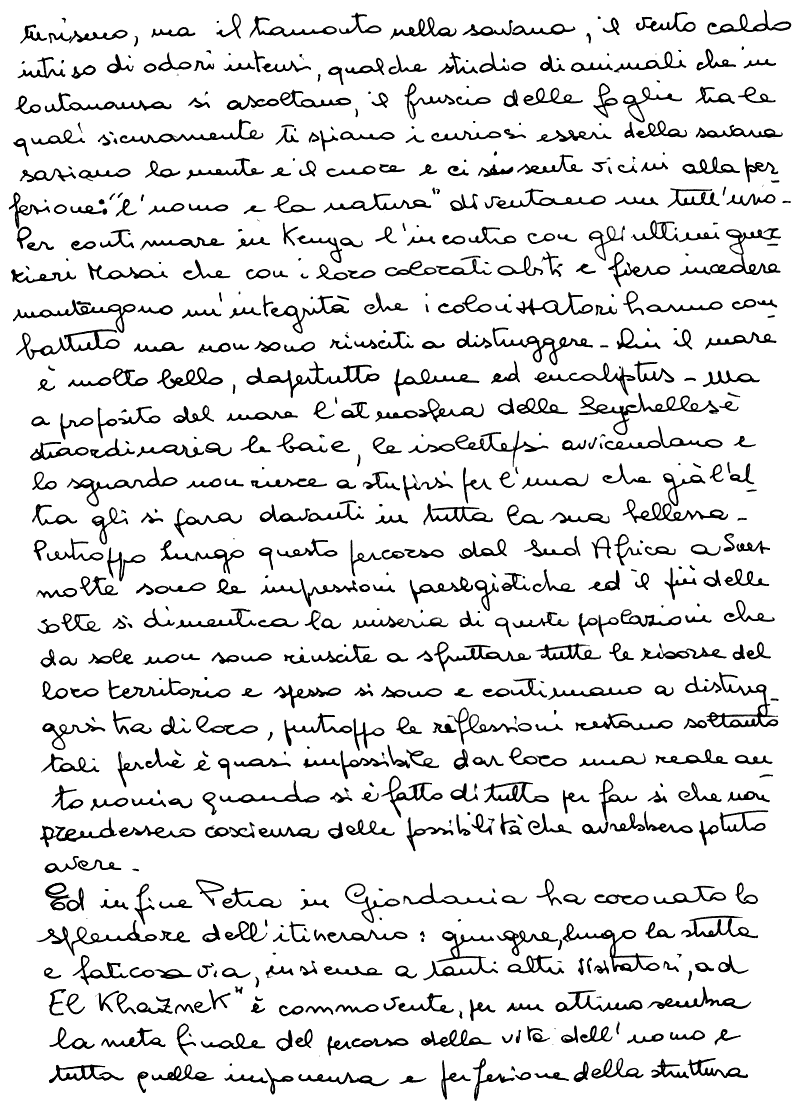 turismo, ma il tramonto nella savana, il vento caldo
intriso di odori intensi, qualche stridio di animali che in
lontananza si ascoltano, il fruscio delle foglie tra le
quali sicuramente ti spiano i curiosi esseri della savana
saziano la mente e il cuore e ci si sente vicini alla per
fezione: "l'uomo e la natura" diventano un tutt'uno -
Per continuare in Kenya l'incontro con gli ultimi guer
rieri Masai che con i loro colorati abiti e fiero incedere
mantengono un'integrità che i colonizzatori hanno com
battuto ma non sono riusciti a distruggere - Qui il mare
è molto bello, dapertutto palme ed eucaliptus - Ma
a proposito del mare l'atmosfera delle Seychelles è
straordinaria le baie, le isolette si avvicendano e
lo sguardo non riesce a stupirsi per l'una che già l'al
tra gli si para davanti in tutta la sua bellezza -
Purtroppo lungo questo percorso dal Sud Africa a Suez
molte sono le impressioni paesegistiche ed il più delle
volte si dimentica la miseria di queste popolazioni che
da sole non sono riuscite a sfruttare tutte le risorse del
loro territorio e spesso si sono e continuano a distrug
gersi tra di loro, purtroppo le riflessioni restano soltanto
tali perchè è quasi impossibile dar loro una reale au
tonomia quando si è fatto di tutto per far si che non
prendessero coscienza delle possibilità che avrebbero potuto
avere -
Ed infine Petra in Giordania ha coronato lo
splendore dell'itinerario: giungere, lungo la stretta
e faticosa via, insieme a tanti altri visitatori, ad
El Khaznek" è commovente, per un attimo sembra
la meta finale del percorso della vita dell'uomo e
tutta quella imponenza e perfezione della struttura